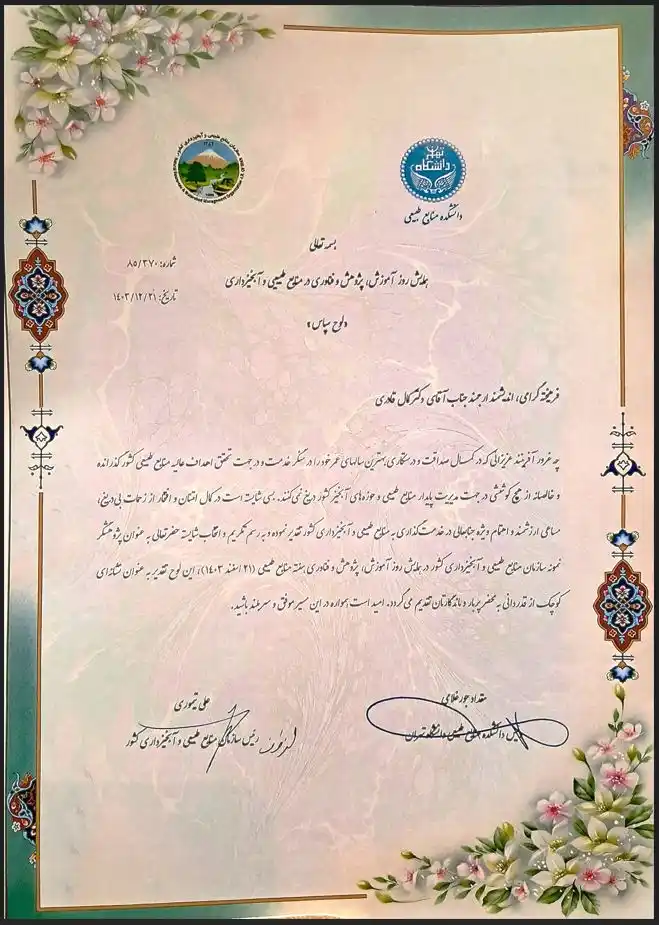 دانشگاه تهران
دانشکده منابع طبیعی
بسمه تعالی
شماره: ۸۵/۳۷۰
همایش روز آموزش، پژوهش و فناوری در منابع طبیعی و آبخیزداری
تاریخ: ۱۴۰۳/۱۲/۲۱
«لوح سپاس»
فرهیخته گرامی، اندیشمند ارجمند جناب آقای دکتر کمال قادری
چه غرور آفرینند عزیزانی که در کمال صداقت و درستکاری بهترین سالهای عمر خود را در سنگر خدمت و در جهت تحقق اهداف عالیه منابع طبیعی کشور گذرانده
و خالصانه از هیچ کوششی در جهت مدیریت پایدار منابع طبیعی و حوزه‌های آبخیز کشور دریغ نمی‌کنند. بسی شایسته است در کمال امتنان و افتخار از زحمات بی‌دریغ،
مساعی ارزشمند و اهتمام ویژه جنابعالی در خدمت‌گذاری به منابع طبیعی و آبخیزداری کشور تقدیر نموده و به رسم تکریم و انتخاب شایسته حضرتعالی به عنوان پژوهشگر
نمونه سازمان منابع طبیعی و آبخیزداری کشور در همایش روز آموزش، پژوهش و فناوری هفته منابع طبیعی (۲۱ اسفند ۱۴۰۳)، این لوح تقدیر به عنوان نشانه‌ای
کوچک از قدردانی به محضر پربار و ماندگارتان تقدیم می گردد. امید است همواره در این مسیر موفق و سربلند باشید.
مقداد جورغلامی
رئیس دانشکده منابع طبیعی دانشگاه تهران
علی تیموری
رئیس سازمان منابع طبیعی و آبخیزداری کشور